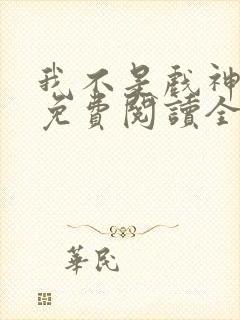 我不是戲神
免費閱讀全
華民